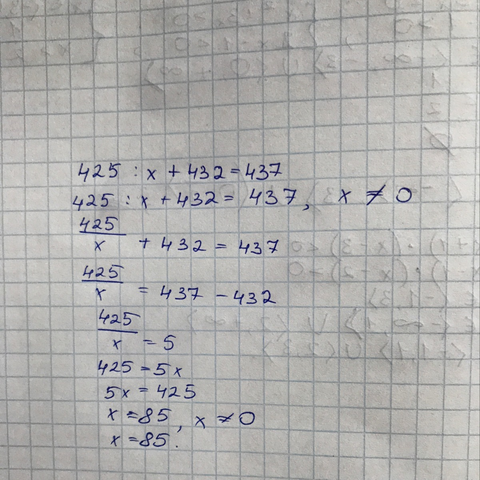 425 : x + 432 = 437
425 : x + 432 = 437, x ≠ 0
425/x + 432 = 437
425/x = 437 - 432
425/x = 5
425 = 5x
5x = 425
x = 85, x ≠ 0
x = 85.